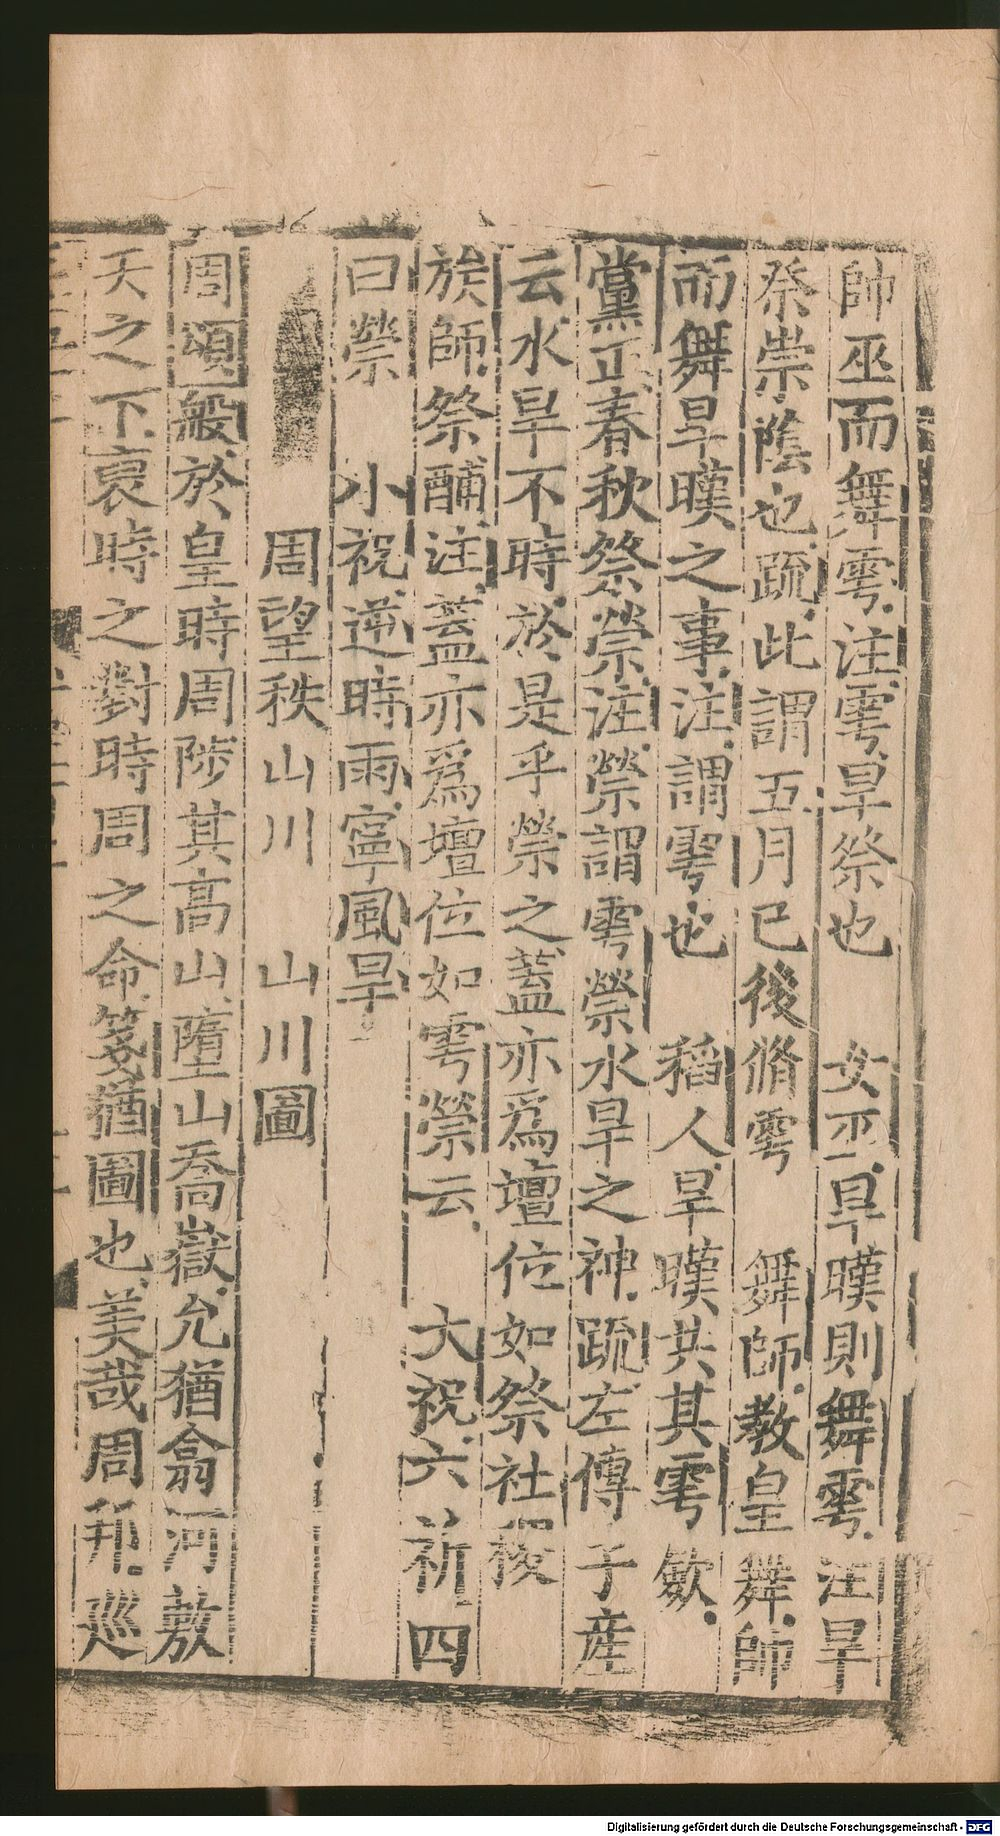 帥巫而舞雩注雩旱祭也　女巫旱暵則舞雩注旱
祭崇陰也疏此謂五月已後脩雩　舞師教皇舞師
而舞旱暵之事注謂雩也　稻人旱暵共其雩斂
黨正春秋祭禜注禜謂雩禜水旱之神疏左傳子産
云水旱不時於是乎禜之蓋亦爲壇位如祭社稷
族師祭酺注蓋亦爲壇位如雩禜云　大祝六祈四
曰禜　小祝逆時雨寧風旱
周望秩山川　山川圖
周頌般於皇時周陟其高山墮山喬嶽允猶翕河敷
天之下裒時之對時周之命箋猶圖也美哉周邦巡
Digitalisierung gefördert durch die Deutsche Forschungsgemeinschaft - DFG